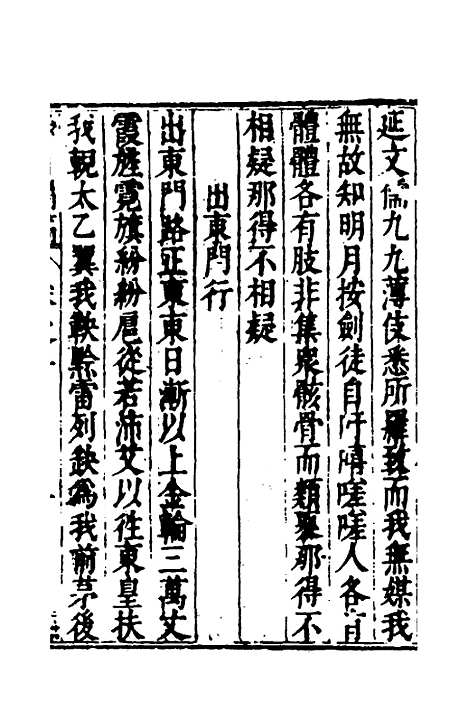 延文儒九九薄伎悉所羅致而我無媒我
無故知明月按劍徒自忓嘖嗟嗟人各有
體體各有肢非集衆骸骨而類聚那得不
相疑那得不相疑
出東門行
出東門路正東東日漸以上金輪三萬丈
霞旌霓旗紛紛扈從若沛艾以徃東皇扶
我輗太乙翼我軮黔雷列缺為我前茅後